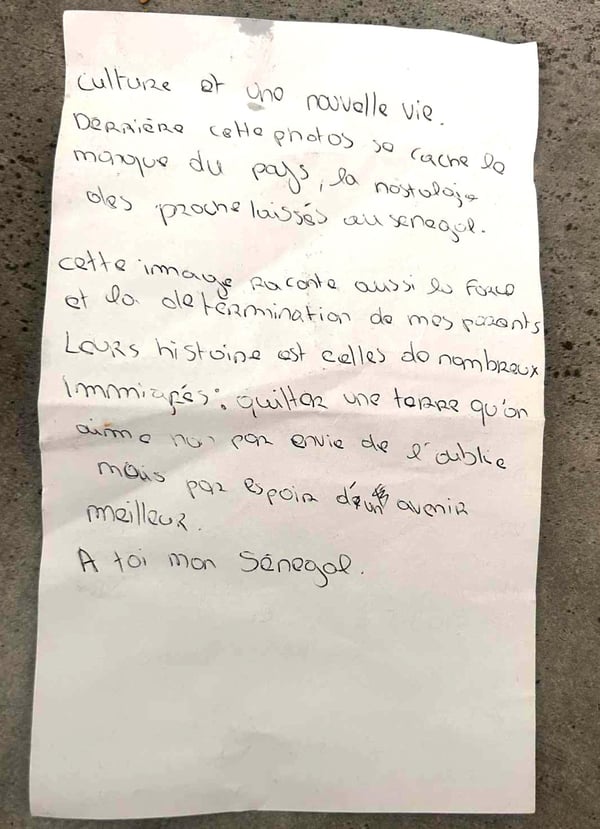 culture et une nouvelle vie.
Derrière cette photos se cache le
manque du pays, la nostalgie
des proche laissés au senegal.
cette image raconte aussi la force
et la détermination de mes parents.
Leurs histoire est celles de nombreux
immigrés : quitter une terre qu'on
aime non par envie de l'oublie
mais par espoir d'un avenir
meilleur.
A toi mon Sénégal.